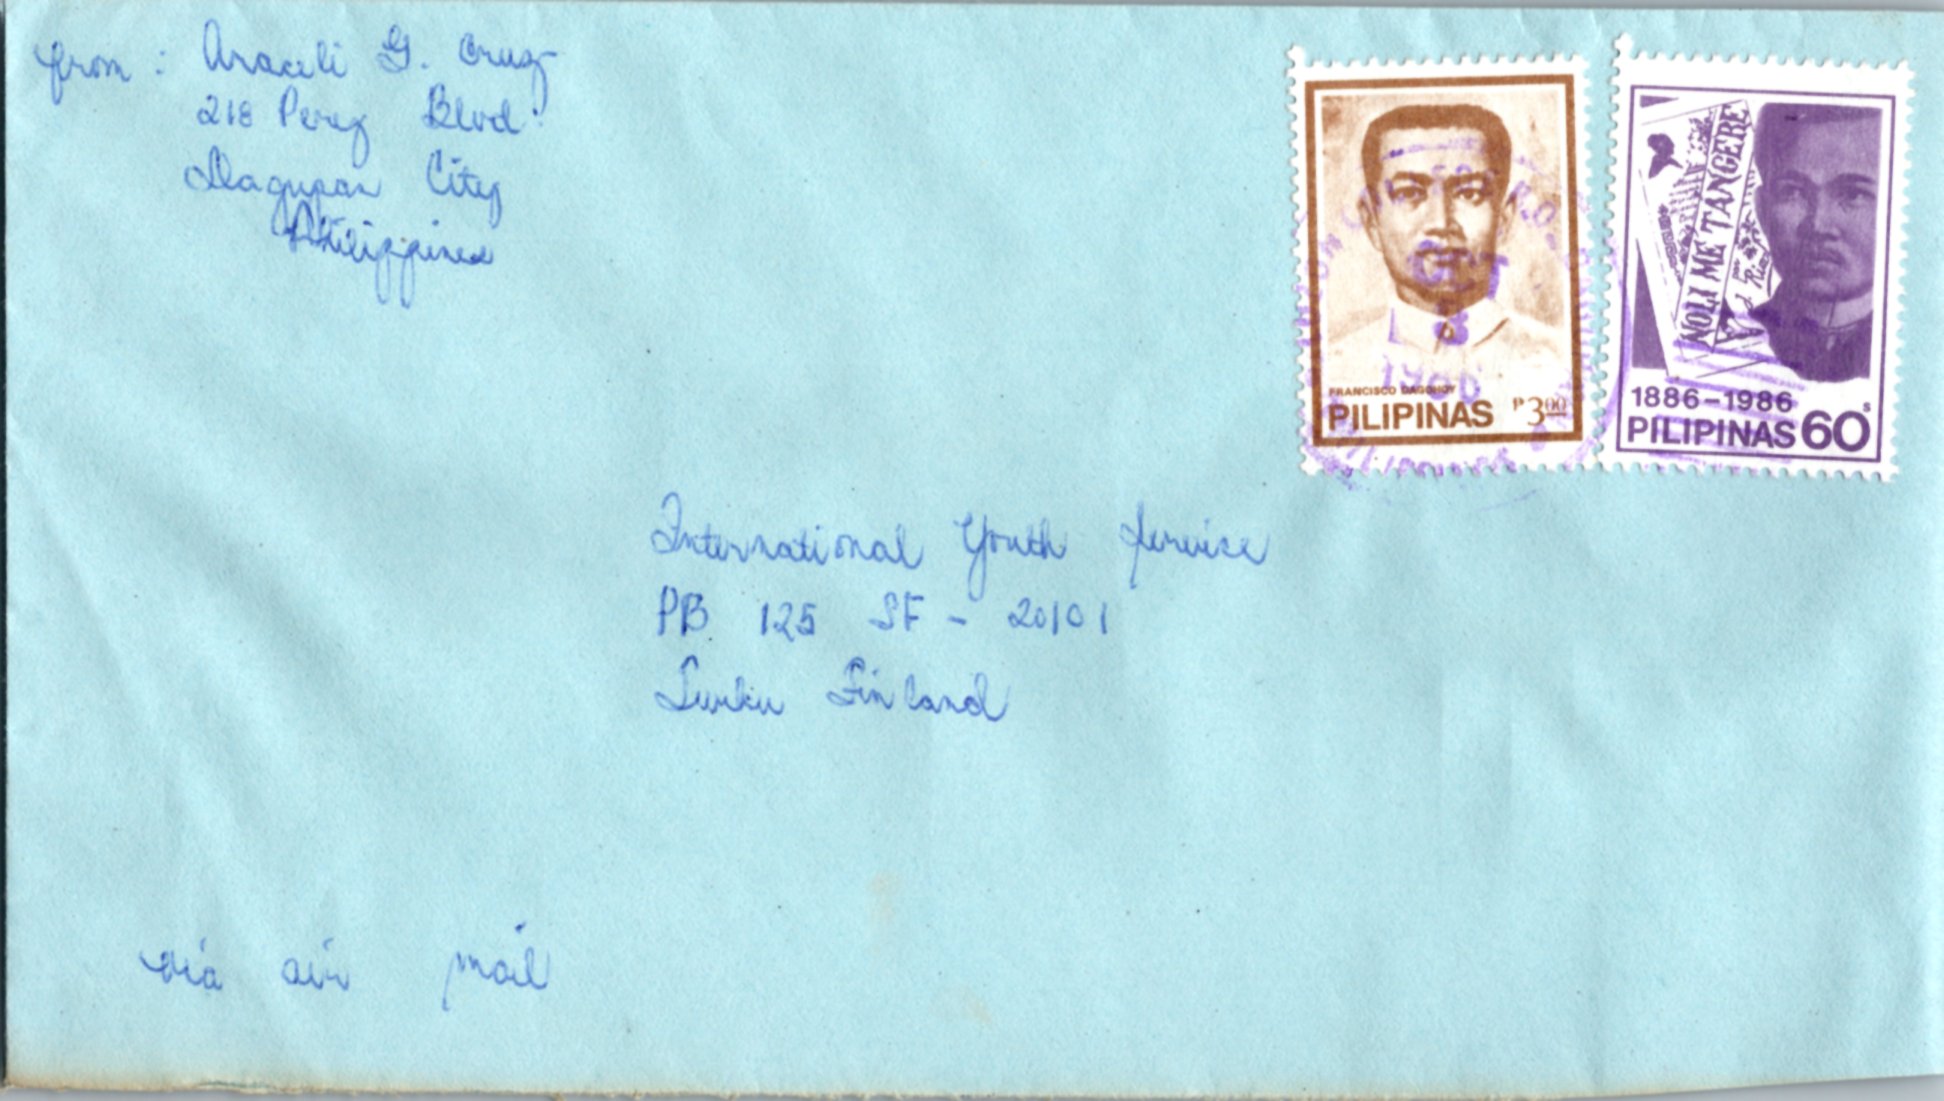 from : Araceli G. Cruz
218 Perez Blvd.
Dagupan City
Philippines
NOLI ME TANGERE
FRANCISCO DAGOHOY
PILIPINAS ₱3.00
1886-1986
PILIPINAS 60s
1986
International Youth Service
PB 125 SF - 20101
Turku Finland
via air mail